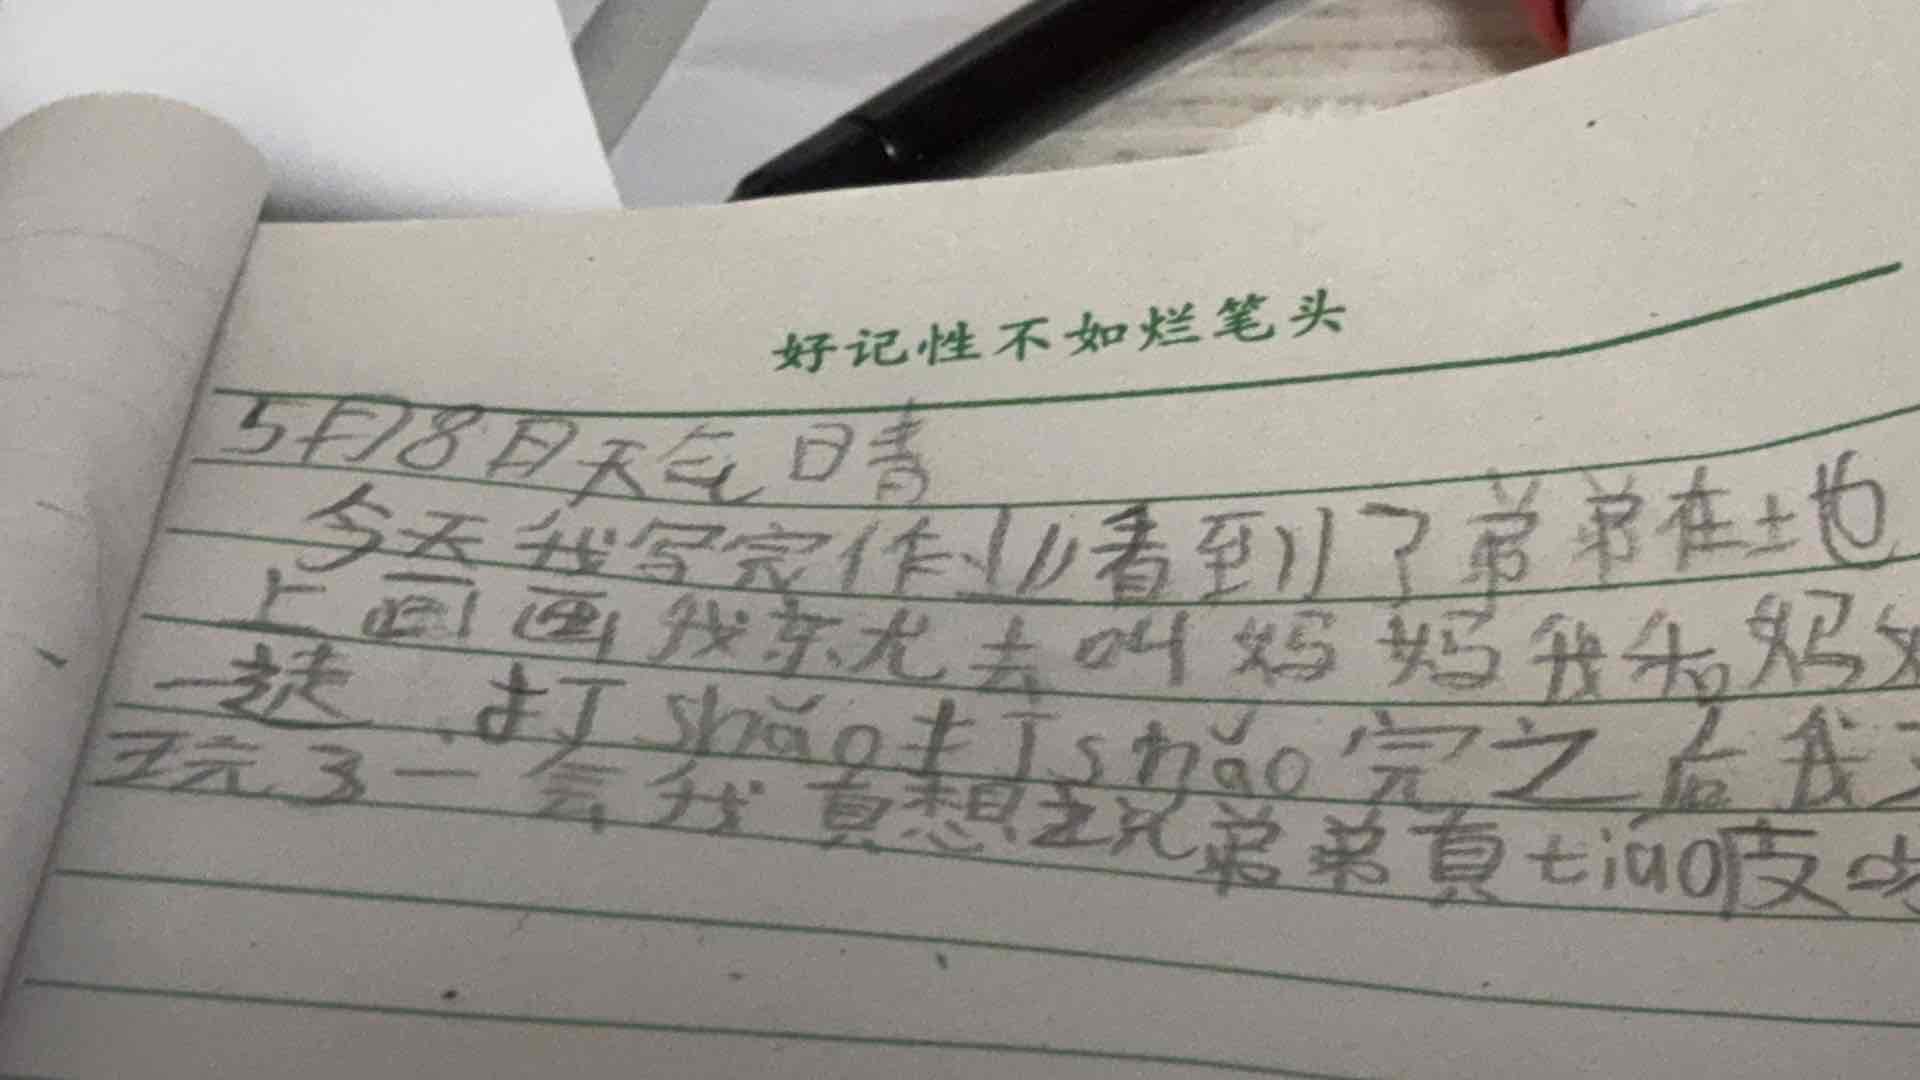 好记性不如烂笔头
5月8日天气晴
今天我写完作业看到了弟弟在地
上画画我就去叫妈妈我和妈
一起打shǎo打shǎo完之后我
玩了一会我真想说弟弟真tiao皮